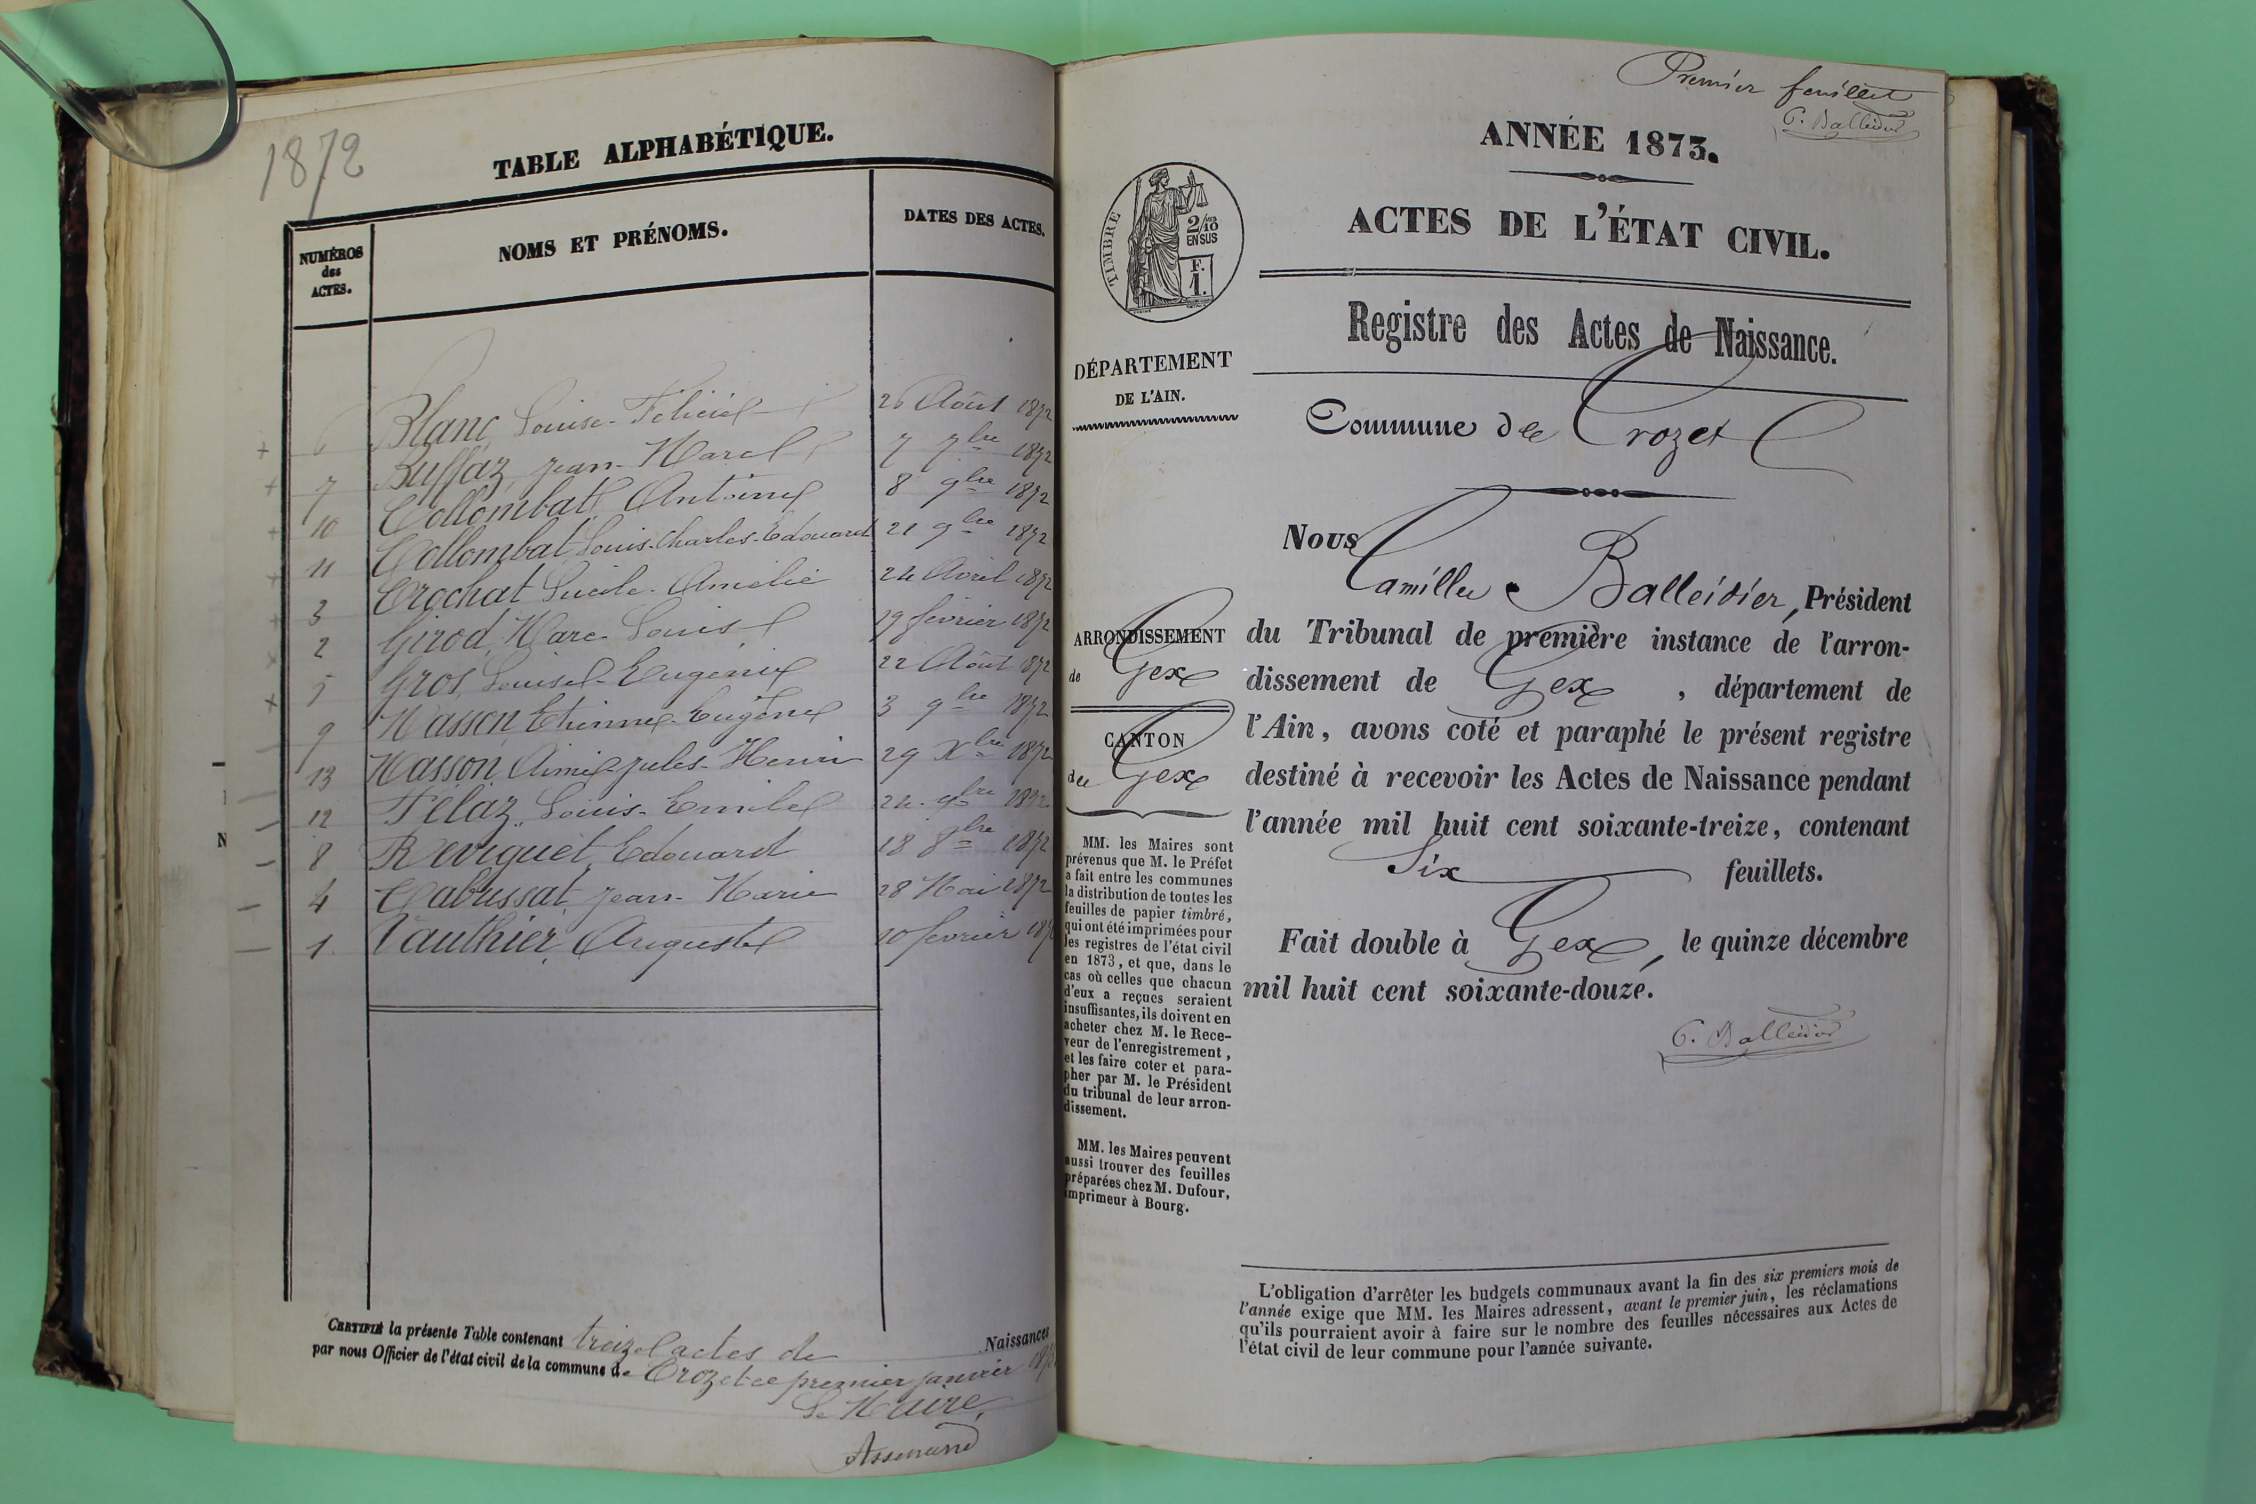 1872
TABLE ALPHABÉTIQUE.
NUMÉROS
des
ACTES.
NOMS ET PRÉNOMS.
DATES DES ACTES.
6 Blanc, Louise-Félicie 26 Août 1872
7 Buffaz, Jean-Marcel 7 7bre 1872
10 Collombat, Antoine 8 9bre 1872
11 Collombat, Louis-Charles-Edouard 21 9bre 1872
3 Crochat, Lucile-Amélie 24 Avril 1872
2 Girod, Marc-Louis 19 février 1872
5 Gros, Louise-Eugénie 22 Août 1872
9 Masson, Etienne-Eugène 3 9bre 1872
13 Masson, Aimé-Jules-Henri 29 Xbre 1872
12 Pélaz, Louis-Emile 24 9bre 1872
8 Reviguet, Edouard 18 8bre 1872
4 Tabussat, Jean-Marie 28 Mai 1872
1. Vauthier, Auguste 10 février
CERTIFIÉ la présente Table contenant treize actes de Naissances
par nous Officier de l'état civil de la commune de Crozet ce premier janvier
Le Maire,
Premier feuillet
ANNÉE 1873.
ACTES DE L'ÉTAT CIVIL.
TIMBRE
2/10
EN SUS
F.
1.
Registre des Actes de Naissance.
DÉPARTEMENT
DE L'AIN.
Commune de Crozet
Nous Camille Balleidier, Président
du Tribunal de première instance de l'arron-
dissement de Gex, département de
l'Ain, avons coté et paraphé le présent registre
destiné à recevoir les Actes de Naissance pendant
l'année mil huit cent soixante-treize, contenant
Six feuillets.
Fait double à Gex, le quinze décembre
mil huit cent soixante-douze.
C. Balleidier
ARRONDISSEMENT
de Gex
CANTON
de Gex
MM. les Maires sont
prévenus que M. le Préfet
a fait entre les communes
la distribution de toutes les
feuilles de papier timbré,
qui ont été imprimées pour
les registres de l'état civil
en 1873, et que, dans le
cas où celles que chacun
d'eux a reçues seraient
insuffisantes, ils doivent en
acheter chez M. le Rece-
veur de l'enregistrement,
et les faire coter et para-
pher par M. le Président
du tribunal de leur arron-
dissement.
MM. les Maires peuvent
aussi trouver des feuilles
préparées chez M. Dufour,
imprimeur à Bourg.
L'obligation d'arrêter les budgets communaux avant la fin des six premiers mois de
l'année exige que MM. les Maires adressent, avant le premier juin, les réclamations
qu'ils pourraient avoir à faire sur le nombre des feuilles nécessaires aux Actes de
l'état civil de leur commune pour l'année suivante.